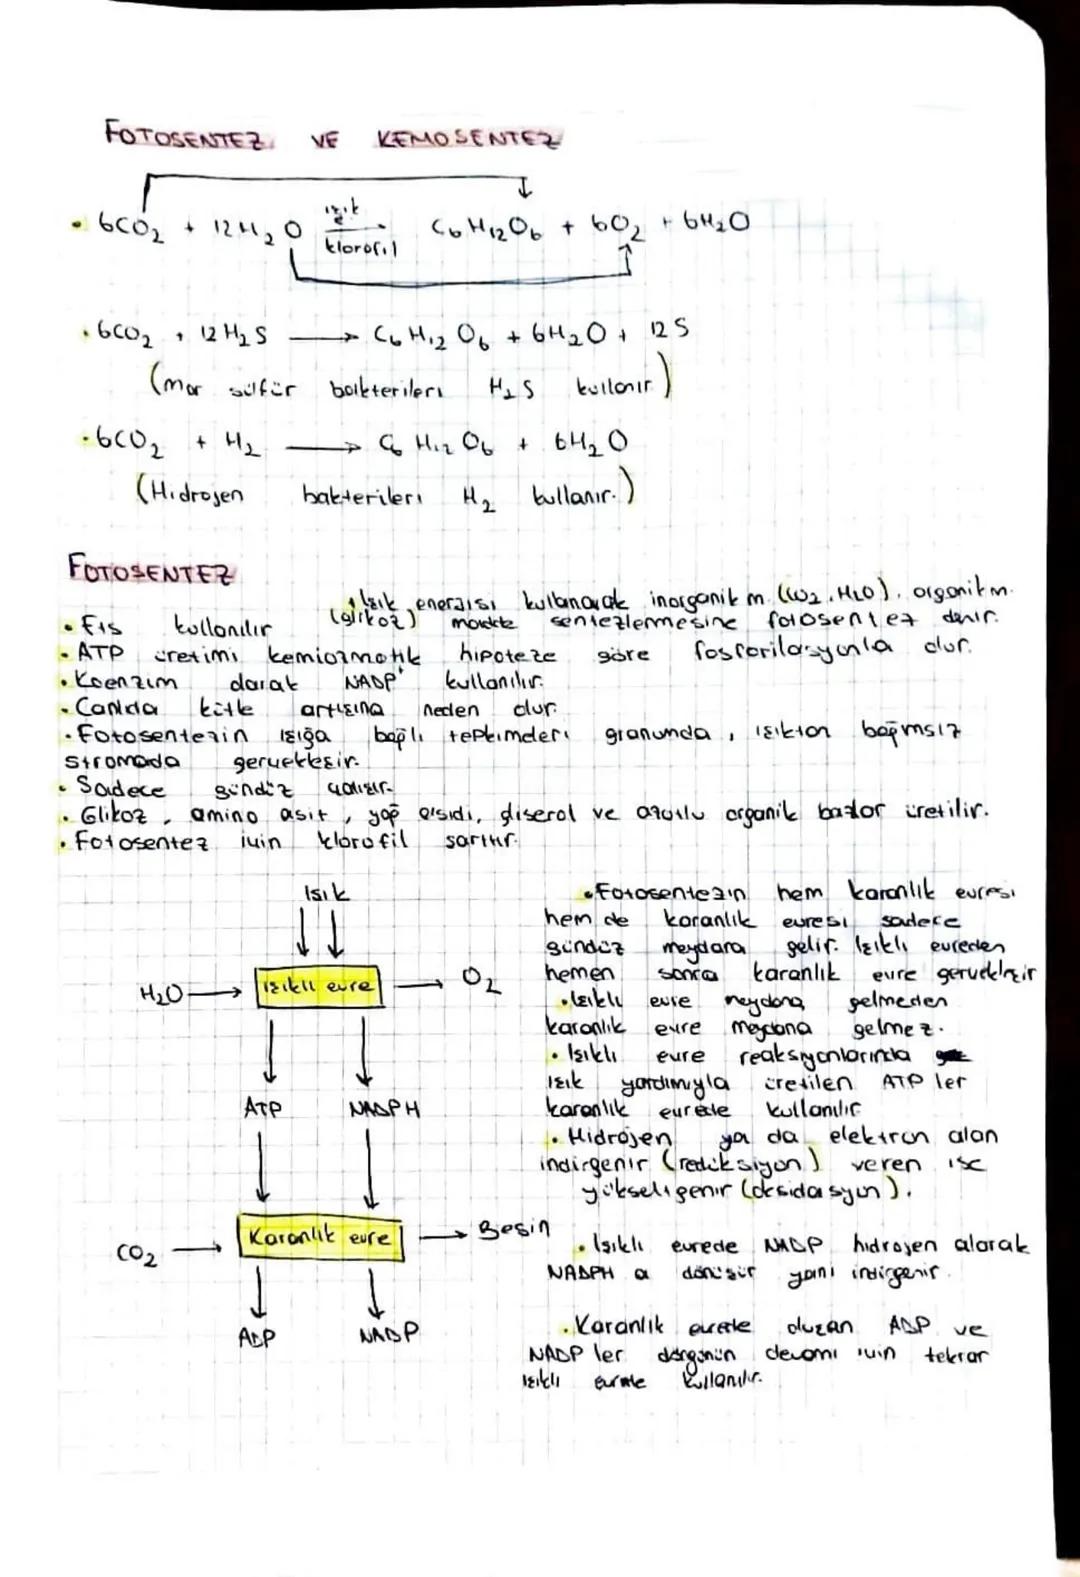 FOTOSENTEZ VE KEMOSENTEZ
6CO2 + 12H2O ışık klorofil C6H12O6 + 6O2 + 6H2O
6CO2 + 12H2S → C6H12O6 + 6H2O + 12S
(mor sülfür bakterileri H2S kullanır.)
6CO2 + H2 → C6H12O6 + 6H2O
(Hidrojen bakterileri H2 kullanır.)
FOTOSENTEZ
Işık enerjisi kullanarak inorganik m. (CO2, H2O), organik m.
(glikoz) madde sentezlenmesine fotosentez denir.
ETS kullanılır
ATP üretimi kemiozmotik hipoteze göre fosforilasyonla olur.
Koenzim olarak NADP+ kullanılır.
Canlıda kütle artışına neden olur.
Fotosentezin ışığa bağlı tepkimeleri granumda, ışıktan bağımsız
stromada gerçekleşir.
Sadece gündüz çalışır.
Glikoz, amino asit, yağ asidi, gliserol ve azotlu organik bazlar üretilir.
Fotosentez için klorofil şarttır.
Işık
H2O → Işıklı evre → O2
ATP NADPH
CO2 → Karanlık evre → Besin
ADP NADP
Fotosentezin hem karanlık evresi
hem de karanlık evresi sadece
gündüz meydana gelir. Işıklı evreden
hemen sonra karanlık evre gerçekleşir
Işıklı evre meydana gelmeden
karanlık evre meydana gelmez.
Işıklı evre reaksiyonlarında
ışık yardımıyla üretilen ATP ler
karanlık evrede kullanılır
Hidrojen ya da elektron alan
indirgenir (redüksiyon) veren ise
yükseltgenir (oksidasyon).
Işıklı evrede NADP hidrojen alarak
NADPH a dönüşür yani indirgenir.
Karanlık evrede oluşan ADP ve
NADP ler döngünün devamı için tekrar
ışıklı evrede kullanılır.